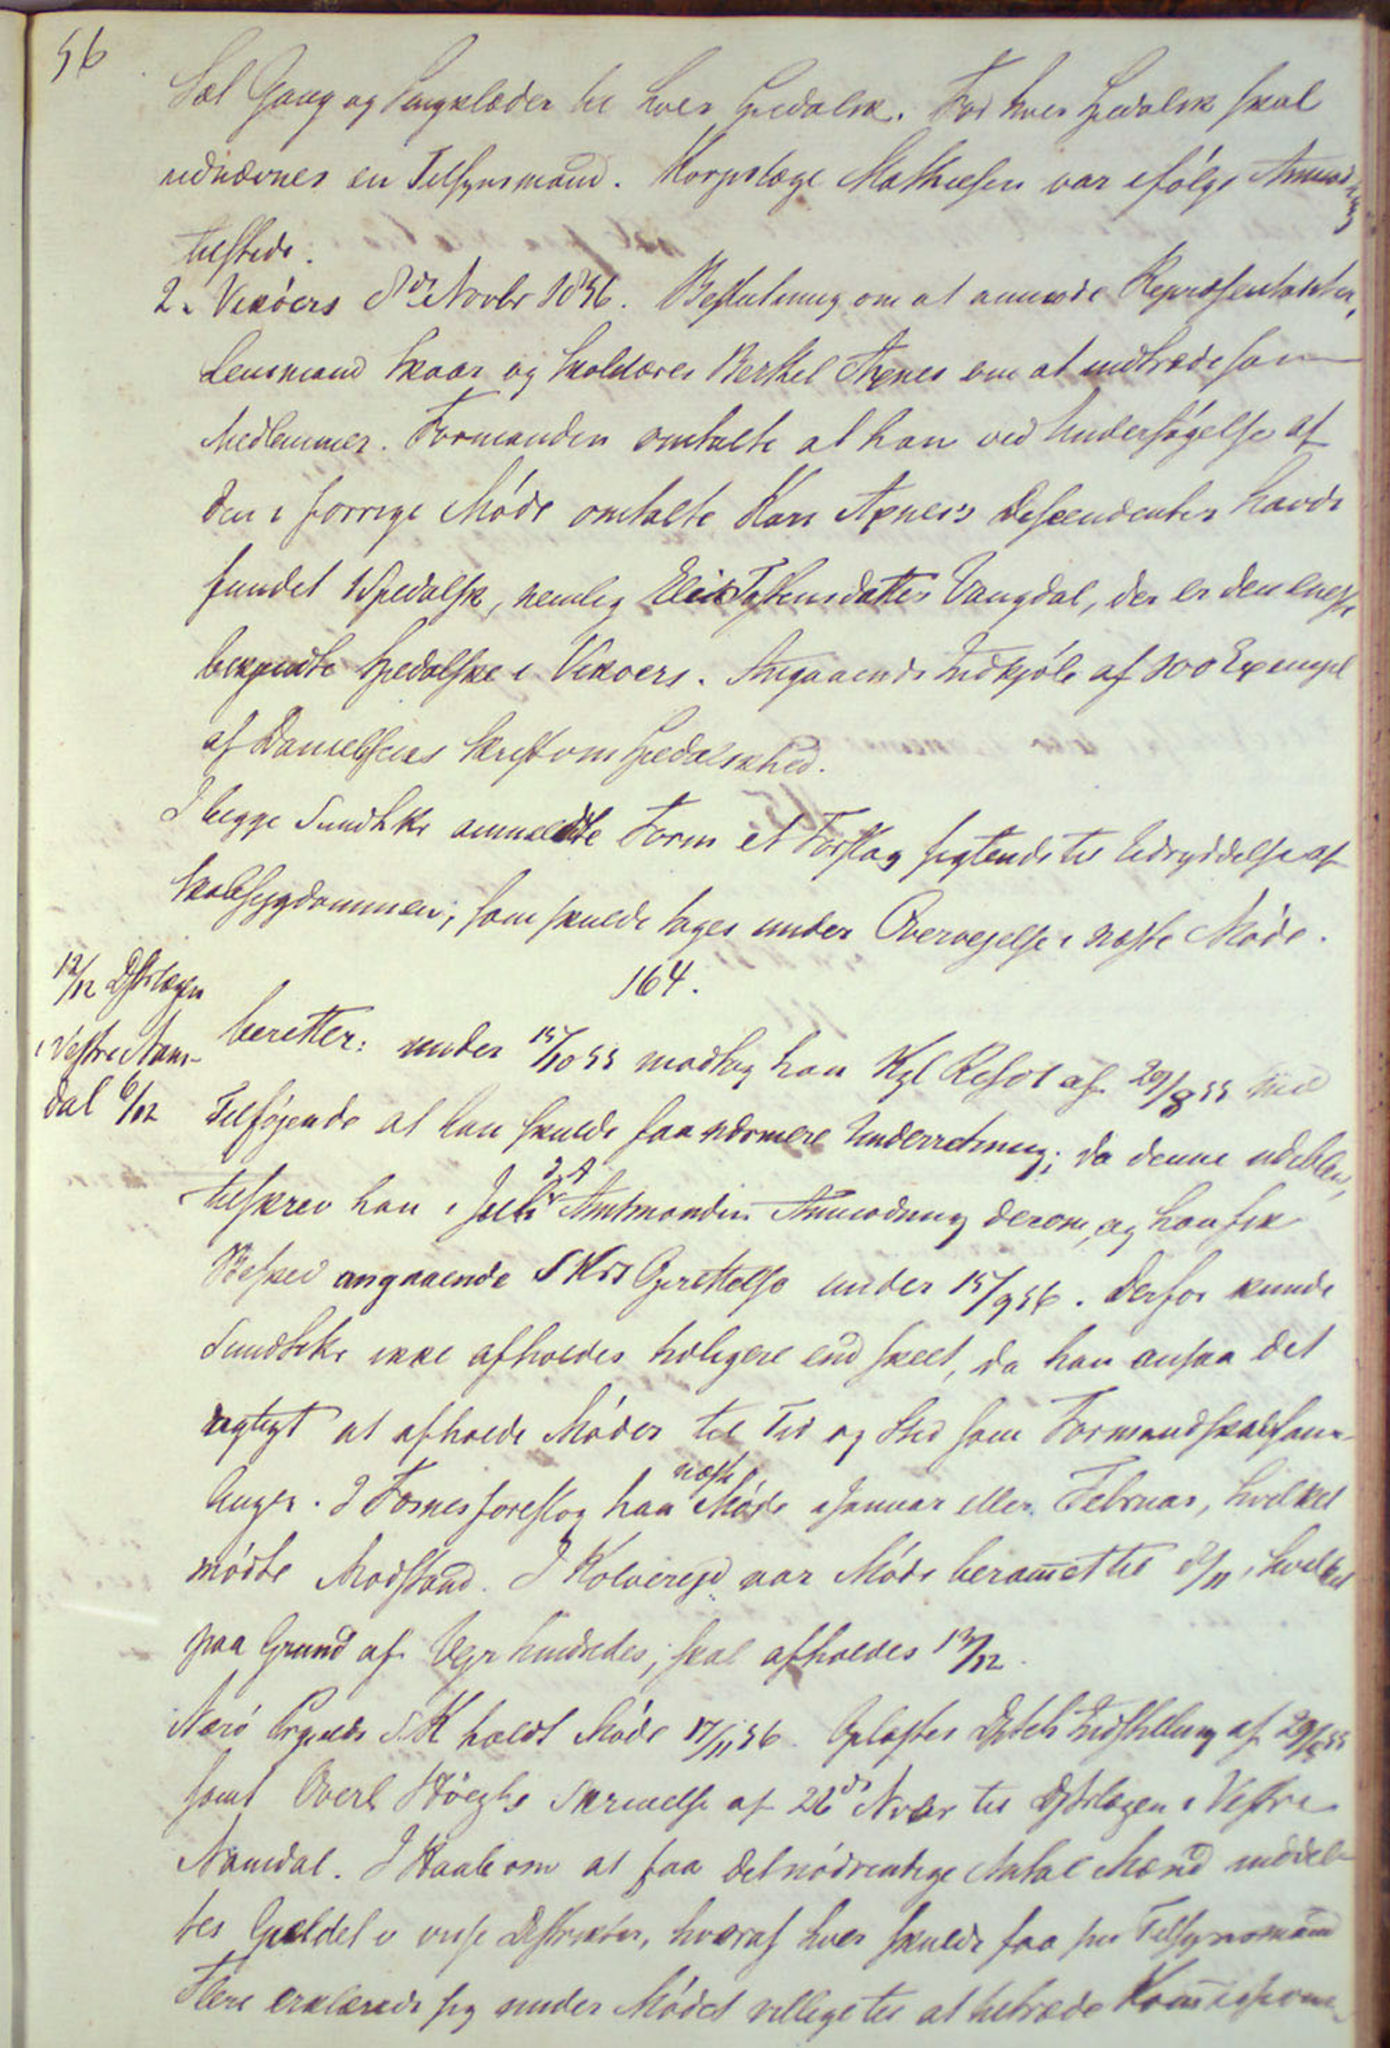 56
Sæt Gang og Sengklæder til hver Spedalsk. For hver Spedalsk skal
udnævnes en Tilsynsmand. Korpslæge Mathiesen var ifølge Anmodning
tilstede.
2. Vikøers 8de Novbr 1856. Beslutning om at anmode Repræsentanter,
Lensmand Skaar og Skolelærer Berthel Axnes om at indtræde som
Medlemmer. Formanden omtalte at han ved Undersøgelse af
den i forrige Møde omtalte Kari Axnes's Descendenter havde
fundet 1 Spedalsk, nemlig Tostensdatter Vangdal, der er den eneste
bekjendte Spedalske i Vikøers. Angaaende Indkjøb af 100 Exempl
af Danielsens Skrift om Spedalskhed.
I begge Sundhks anmeldte Form et Forslag sigtende til Udryddelse af
Skabsygdommen, som skulde tages under Overvejelse i næste Møde.
164.
12/12 Dstrlægen
i Vestre Nam-
dal 6/12
beretter: under 15/10 55 modtog han Kgl Resol af 20/8 55 med
Tilføjende at han skulde faa nærmere Underretning; da denne udeblev,
tilskrev han i Juli d. A. Amtmanden Anmodning derom, og han fik
Besked angaaende SKs Oprettelse under 15/9 56. Derfor kunde
Sundhks ikke afholdes tidligere end skeet, da han ansaa det
rigtigt at afholde Møder til Tid og Sted som Formandskabssam-
linger. I Fosnes foreslog han næste Møde i Januar eller Februar, hvilket
mødte Modstand. I Kolvereid var Møde berammet til 8/11, hvilket
paa Grund af Vejr hindredes; skal afholdes 13/12.
Nærø Prgjelds S.K holdt Møde 17/11 56. Oplæstes Dptets Indstilling af 20/8 55
samt Overl Høeghs Skrivelse af 22de Novbr til Dstrlægen i Vestre
Namdal. I Haab om at faa det nødvendige Antal Mænd inddel-
tes Gjældet i visse Distrikter, hvoraf hver skulde faa sin Tilsynsmand
Flere erklærede sig under Mødet villige til at tiltræde Kommissionen